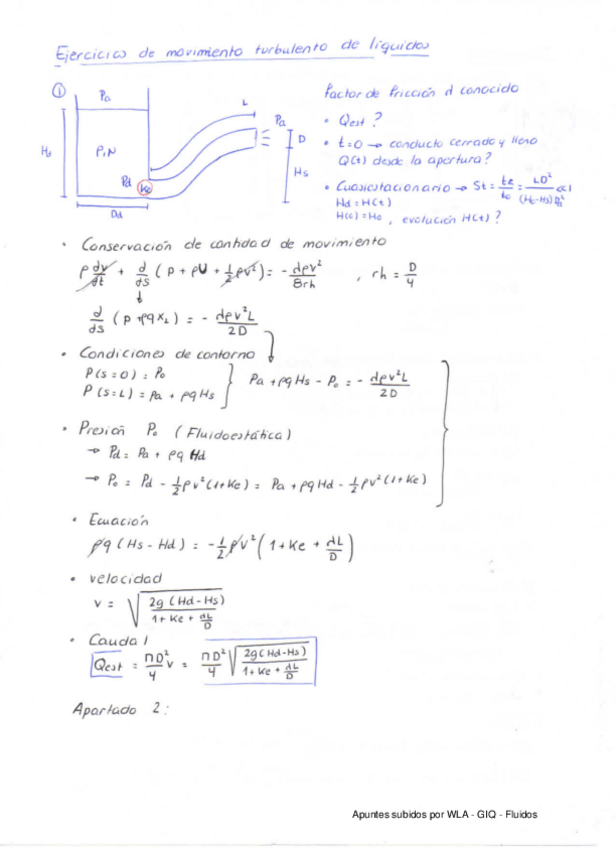 Ejercicios de movimiento turbulento de líquidos
①
Pa
H₀
P,N
Pd
Ke
Dd
L
Pa
D
Hs
Factor de fricción λ conocido
• Qest ?
• t=0 → conducto cerrado y lleno
Q(t) desde la apertura?
• Cuasiestacionario → St = te/t₀ = LD²/(Hd-Hs)Dd² <<1
Hd = H(t)
H(0) = H₀ , evolución H(t) ?
• Conservación de cantidad de movimiento
ρ dv/dt + d/ds (p + ρU + ½ρv²) = - λρv²/8rh , rh = D/4
↓
d/ds (p + ρg x₂) = - λρv²L/2D
• Condiciones de contorno
P(s=0) = P₀
P(s=L) = Pa + ρg Hs
Pa + ρg Hs - P₀ = - λρv²L/2D
• Presión P₀ (Fluidoestática)
→ Pd = Pa + ρg Hd
→ P₀ = Pd - ½ρv²(1+Ke) = Pa + ρg Hd - ½ρv²(1+Ke)
• Ecuación
ρg (Hs - Hd) = -½ρv² (1 + Ke + λL/D)
• velocidad
v = √(2g (Hd-Hs)/(1+Ke+λL/D))
• Caudal
Qest = ΠD²/4 v = ΠD²/4 √(2g(Hd-Hs)/(1+Ke+λL/D))
Apartado 2:
Apuntes subidos por WLA - GIQ - Fluidos